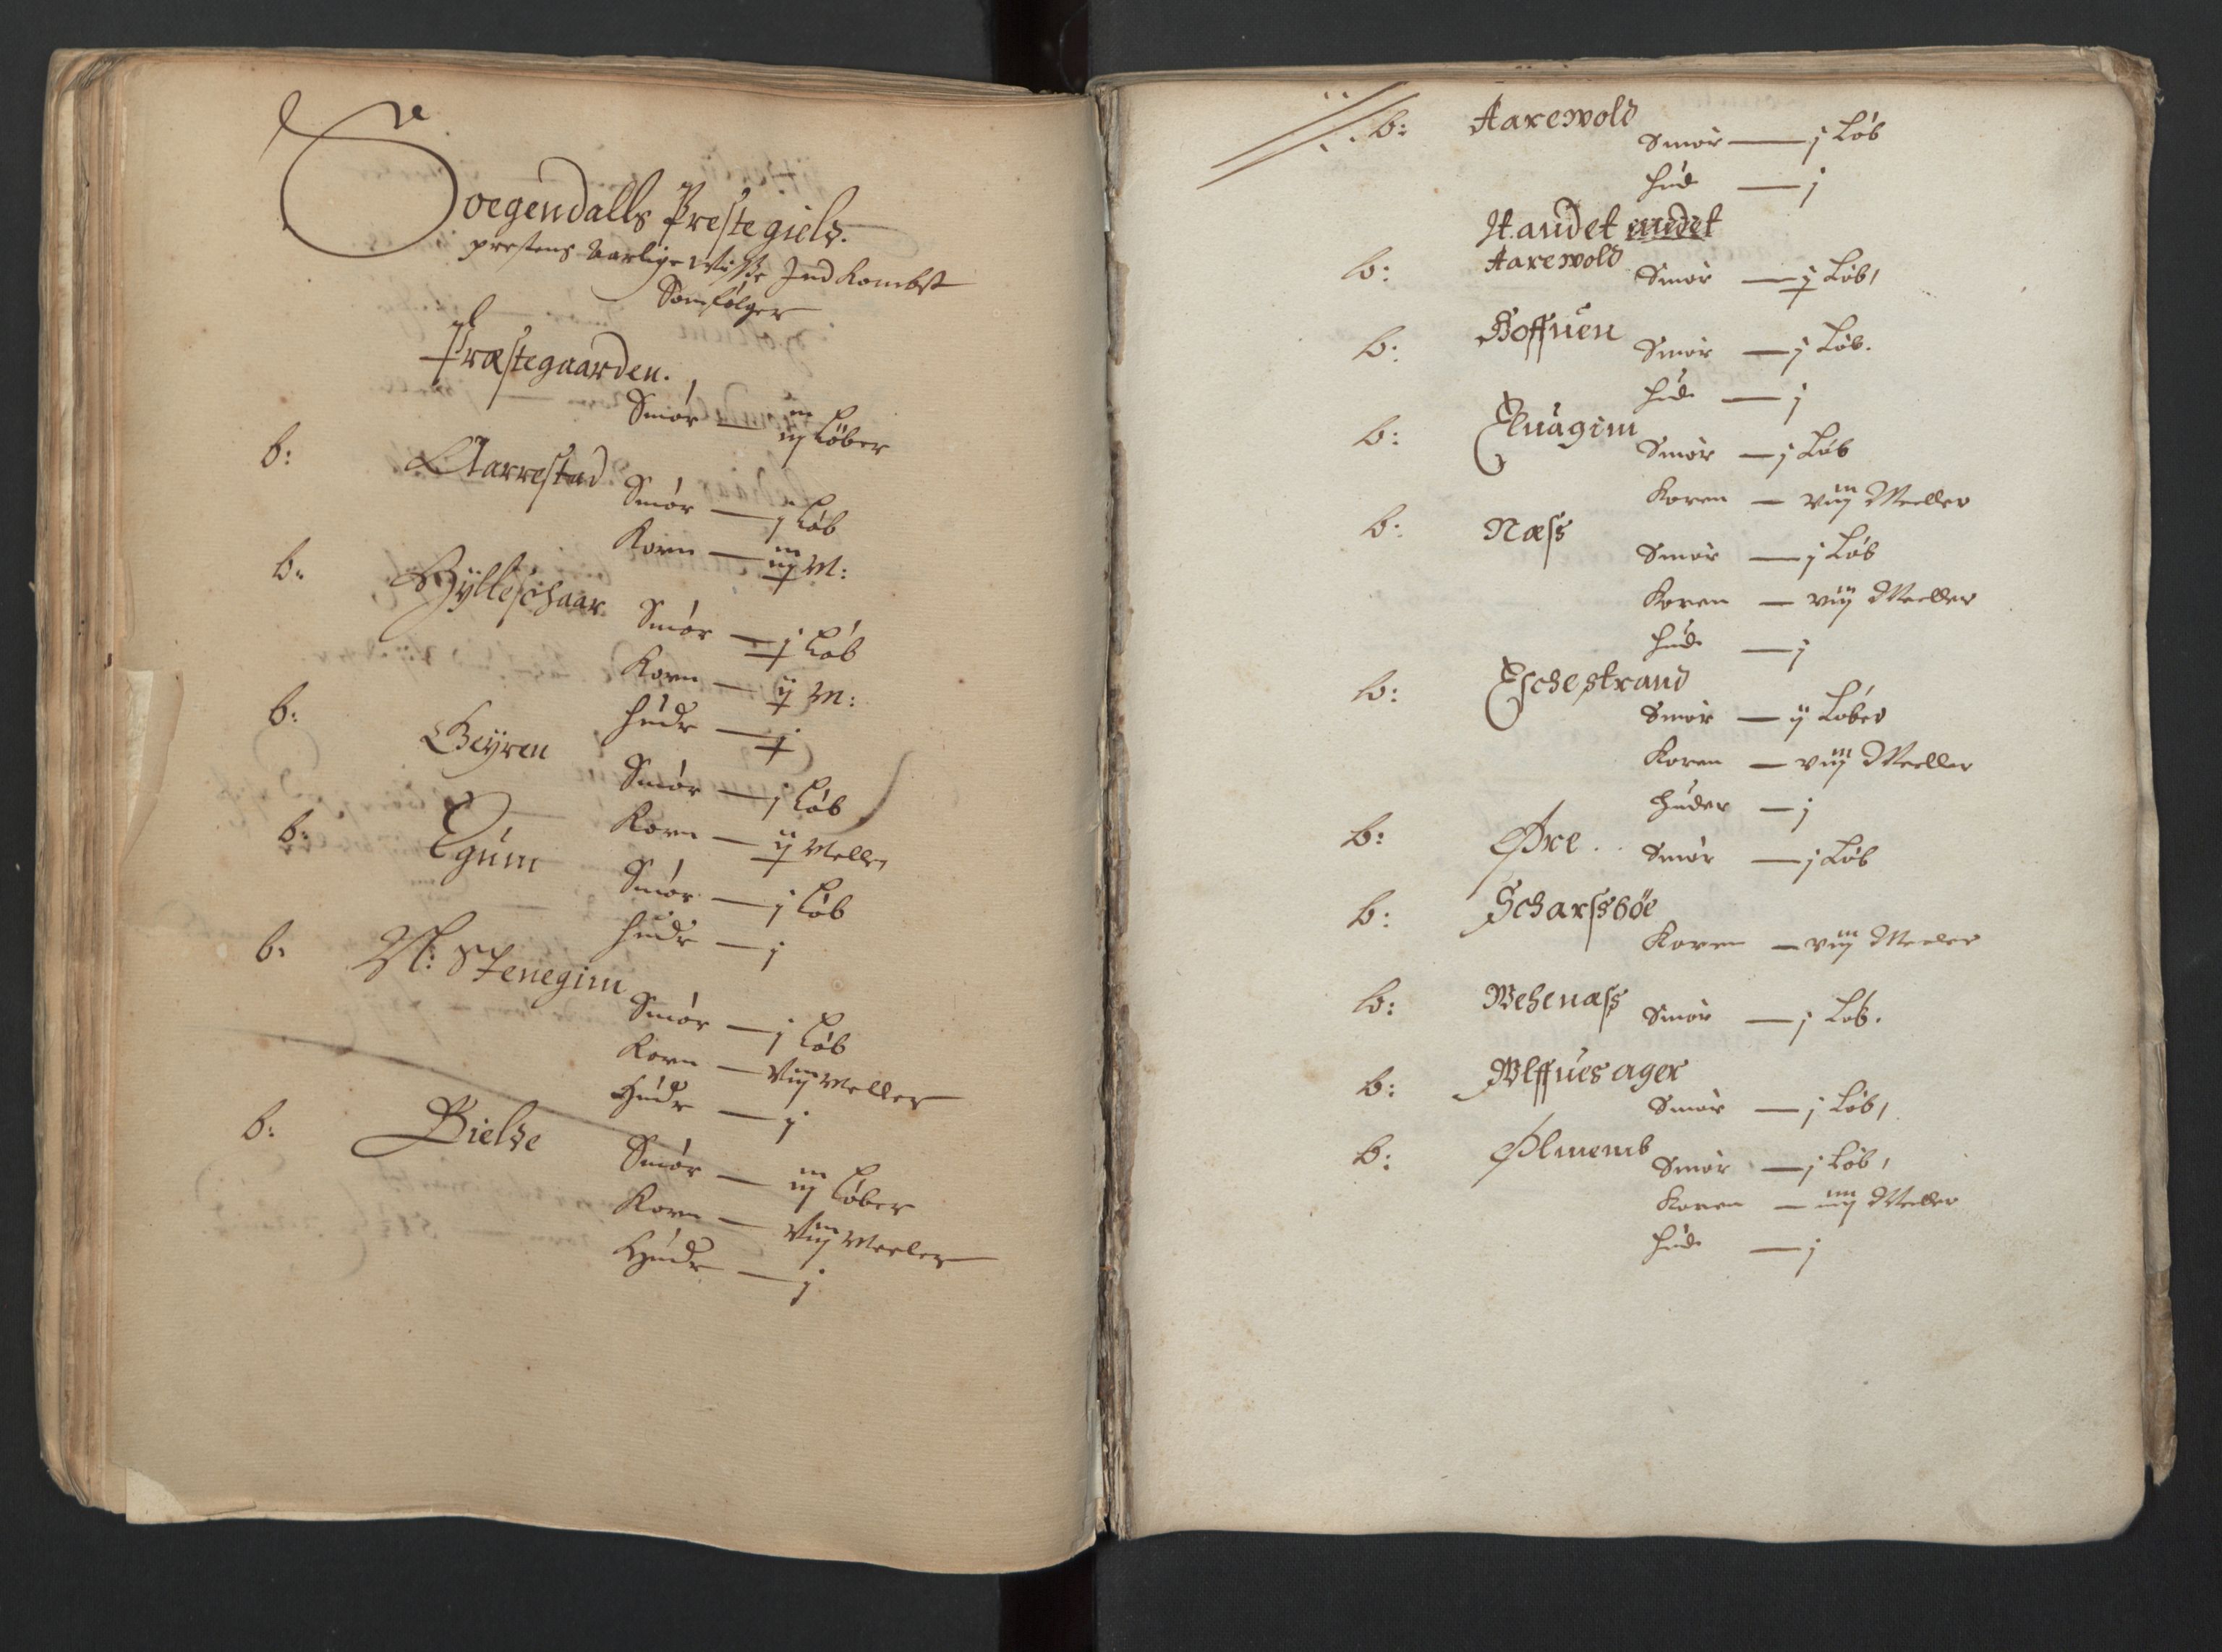 Soegendalls Prestegield.
prestens Aarlige Wisse Ind Kombst
Som følger
Præstegaarden.
Smør — iij Løber
b: Aarrestad
Smør — j Løb
Korn — iij M:
b: Hÿlleschaar
Smør — j Løb
Korn — ij M:
Hude — j
b: Beÿren
Smør — j Løb
Korn — ij Meller
b: Egúm
Smør — j Løb
Hude — j
b: N: Stenegim
Smør — j Løb
Korn — viij Meller
Hude — j
b: Bielde
Smør — iij Løber
Korn — viij Meeler
Hude — j
b: Aarewold
Smør — j Løb
Hud — j
Handet
b: Aarewold
Smør — j Løb
b: Hoffuen
Smør — j Løb.
Hude — j
b: Eluagim
Smør — j Løb
Koren — viij Meller
b: Næss
Smør — j Løb
Koren — vij Meller
Hude — j
b: Eschestrand
Smør — ij Løber
Koren — viij Meeller
Huder — j
b: Øre
Smør — j Løb
b: Scharssböe
Koren — viij Meeler
b: Wehenæss
Smør — j Løb.
b: Wlffuesager
Smør — j Løb
b: Ølmemb
Smør — j Løb
Koren — iiij Meller
Hude — j